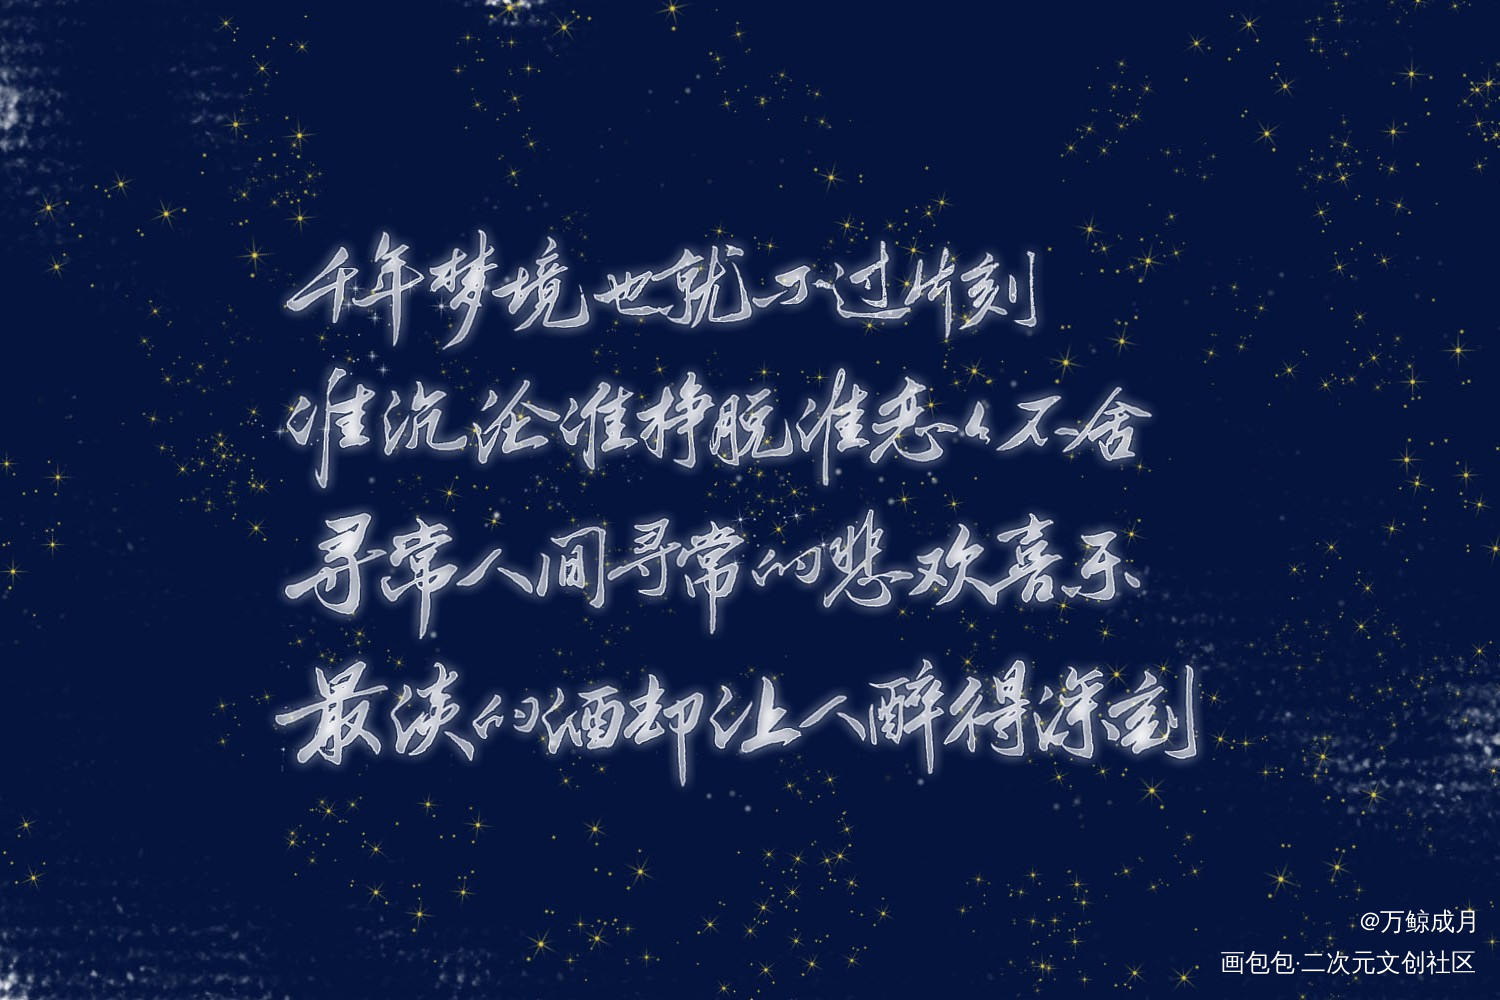 千年梦境也就不过片刻
谁沉沦谁挣脱谁恋恋不舍
寻常人间寻常的悲欢喜乐
最淡的酒却让人醉得深刻
@万鲸成月
画包包·二次元文创社区